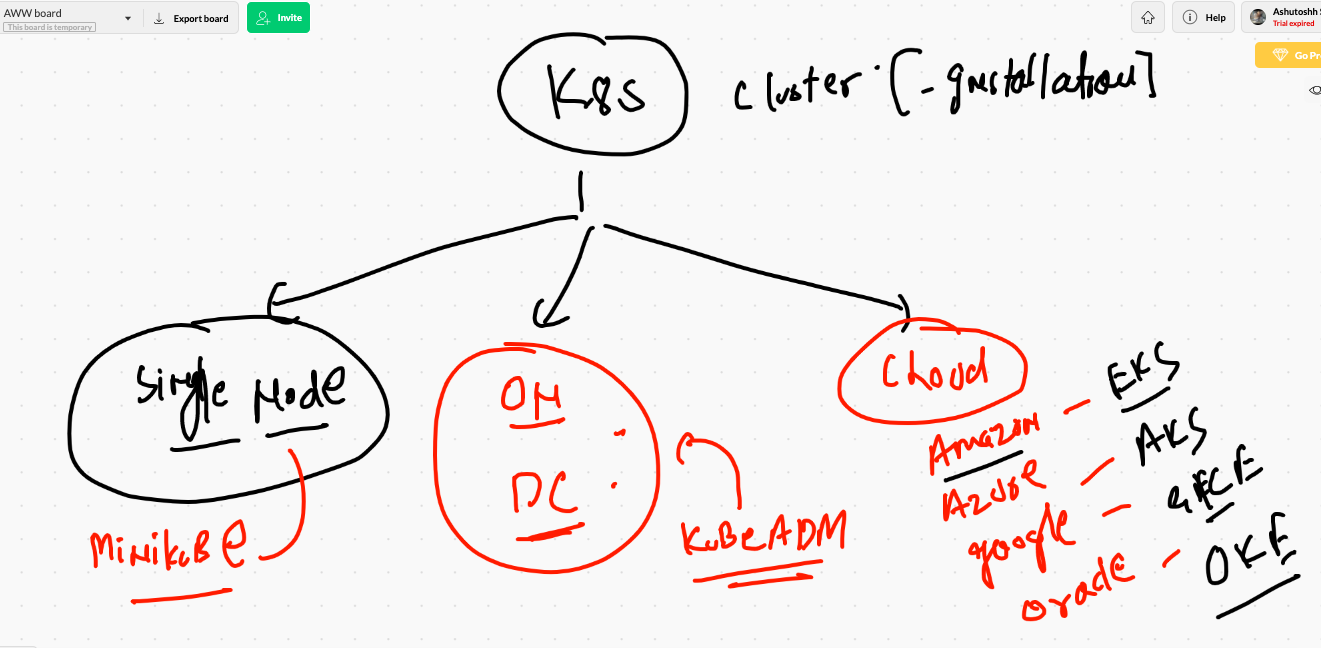 AWW board
This board is temporary
Export board
Invite
Help
Ashutoshh S
Trial expired
Go Pro
K8S cluster [- installation]
Single Node
Minikube
ON
DC
KubeADM
Cloud
Amazon - EKS
Azure - AKS
google -
oracle - OKE